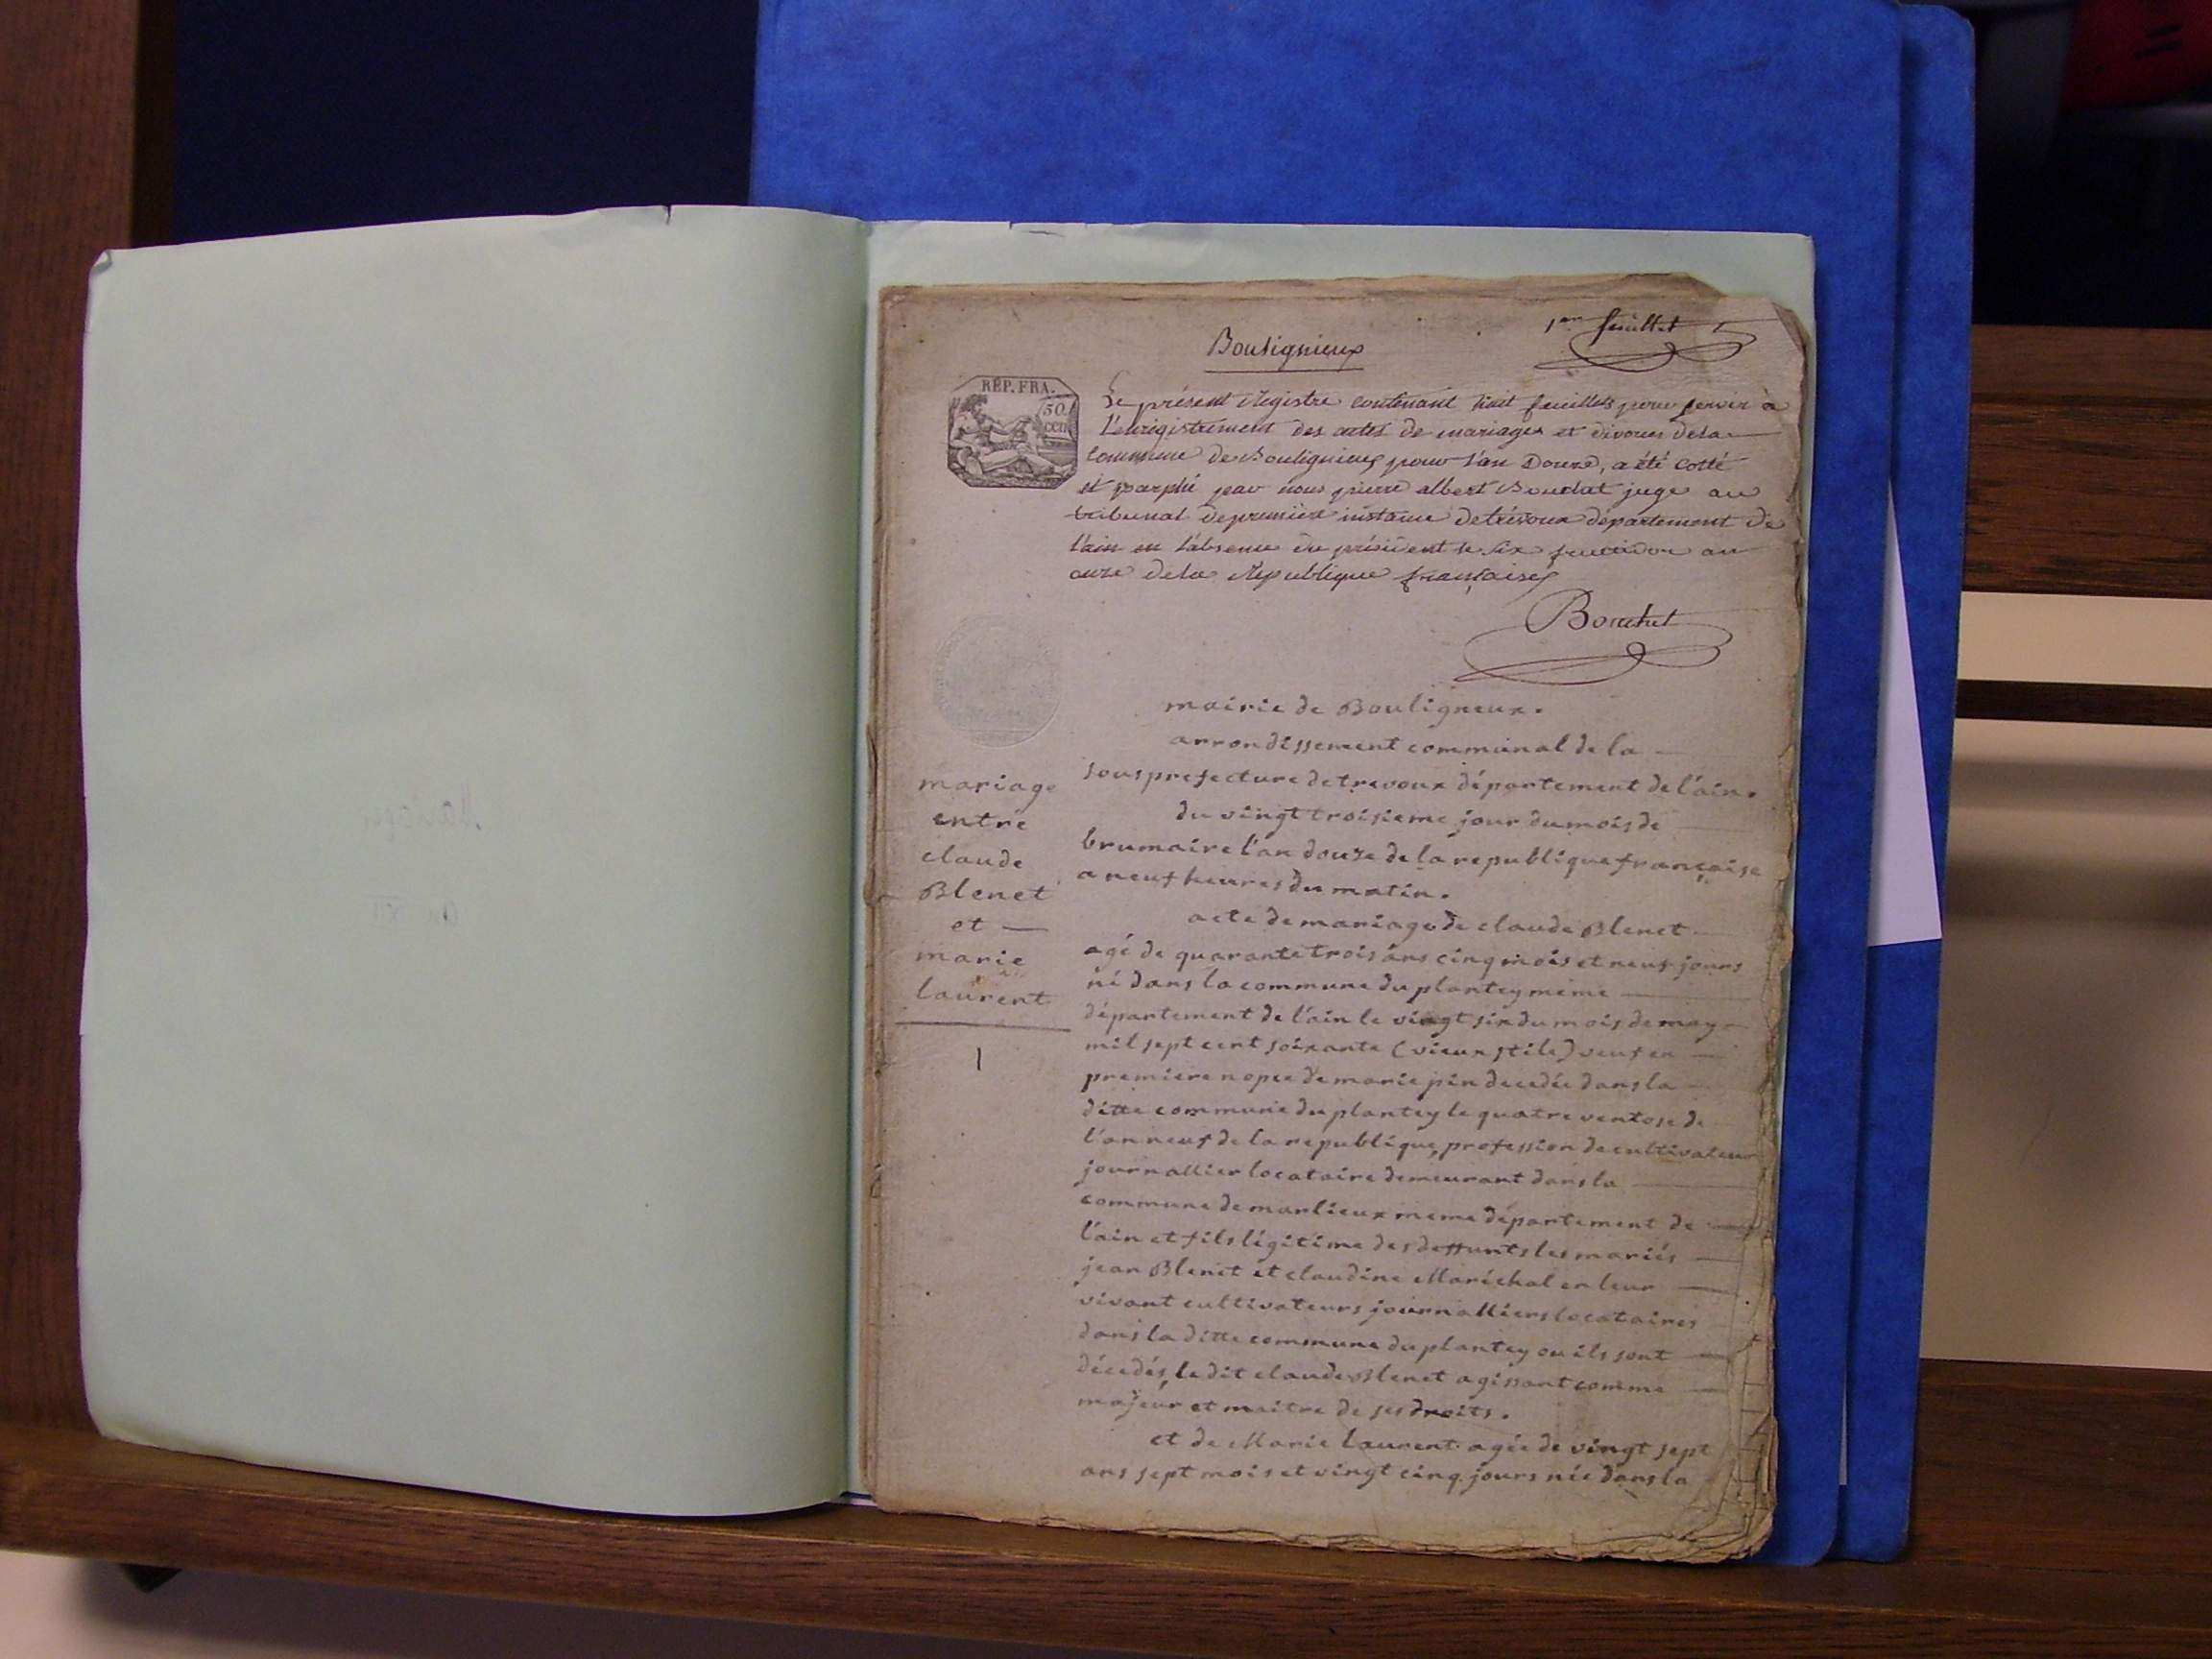 1er feuillet
Boulignieux
REP. FRA.
50.
cen
Le présent Registre contenant huit feuillets pour servir à
l'enregistrement des actes de mariages et divorces dela
Commune de Bouligneux pour l'an Douze, a été cotté
et paraphé par nous pierre albert Bouchet juge au
tribunal de premiere instance de trévoux département de
l'ain en l'absence du président le six fructidor an
onze dela République française
Bouchet
mairie de Bouligneux.
arrondissement communal de la
sous prefecture de trevoux département de l'ain.
du vingt troisieme jour du mois de
brumaire l'an douze de la republique française
a neuf heures du matin.
mariage
entre
claude
Blenet
et
marie
laurent
1
acte de mariage de claude Blenet
agé de quarante trois ans cinq mois et neuf jours
né dans la commune du plantey même
département de l'ain le vingt six du mois de may
mil sept cent soixante (vieux stile) veuf en
premiere nopce de marie pin decedée dans la
ditte commune du plantey le quatre ventose de
l'an neuf de la republique, profession de cultivateur
journallier locataire demeurant dans la
commune de marlieux meme département de
l'ain et fils légitime des deffunts les mariés
jean Blenet et claudine Maréchal en leur
vivant cultivateurs journalliers locataires
dans la ditte commune du plantey ou ils sont
décédés, le dit claude Blenet agissant comme
majeur et maitre de ses droits.
et de Marie laurent agée de vingt sept
ans sept mois et vingt cinq jours née dans la